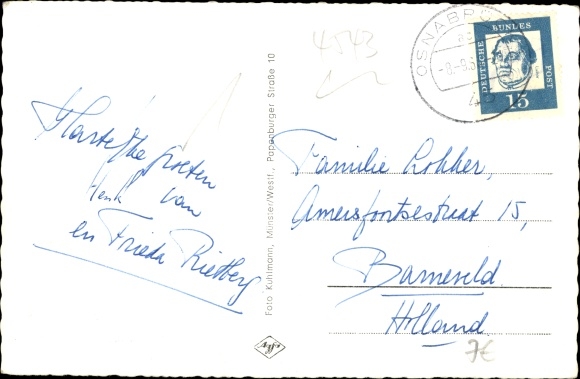 4543
OSNABRÜ
-8.-8.6
DEUTSCHE
BUNDES
POST
15
Hartelijke groeten
Henk van
en Frieda Rietberg
Foto Kuhlmann, Münster/Westf., Papenburger Straße 10
Familie Lokker,
Amersfoortsestraat 15,
Barneveld
Holland
Agfa
7€